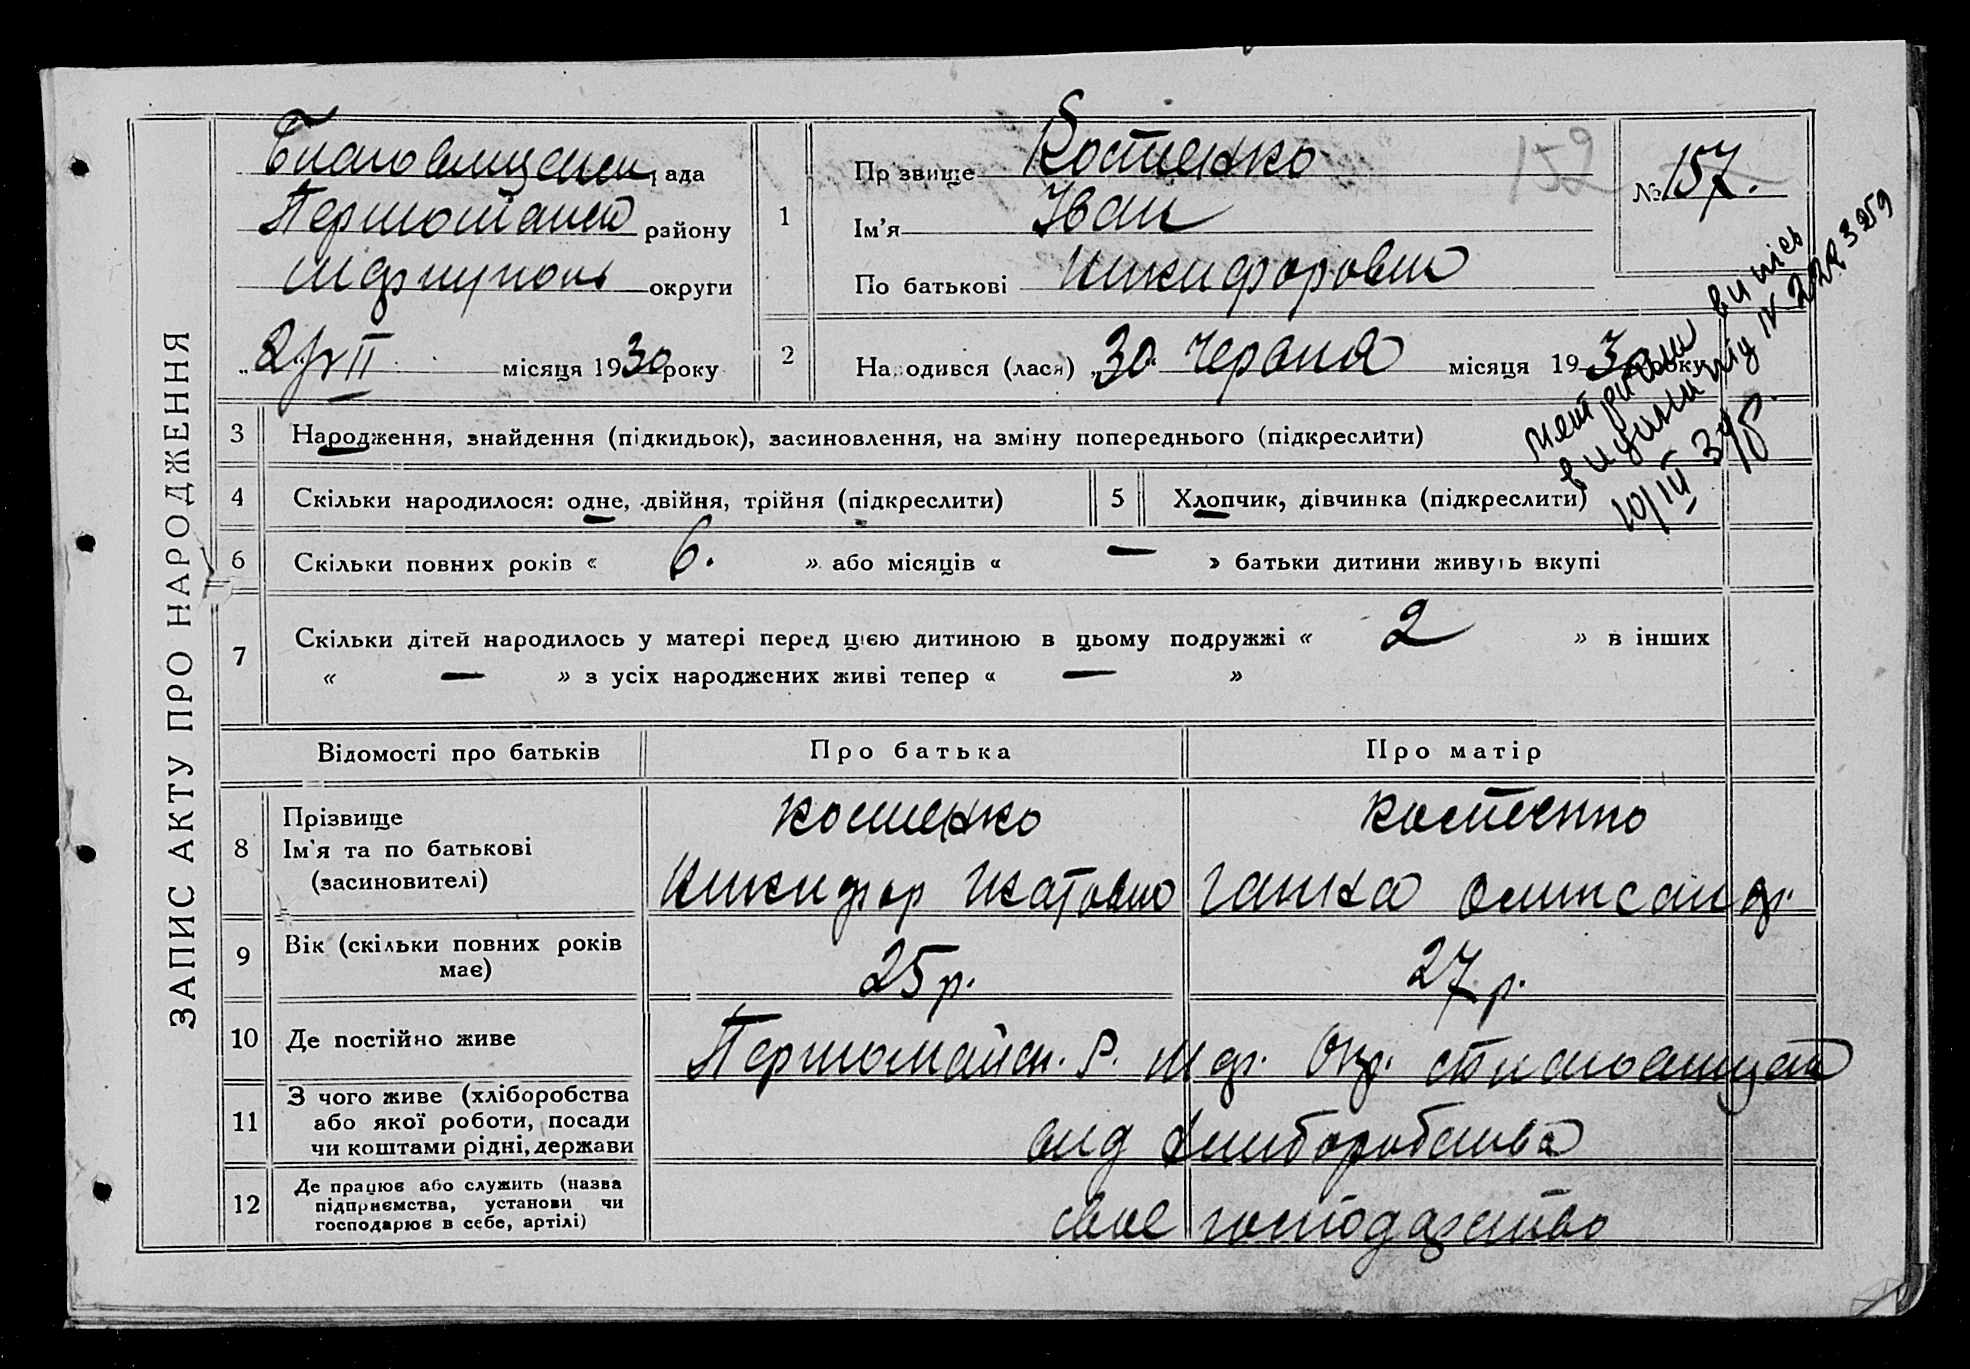 ЗАПИС АКТУ ПРО НАРОДЖЕННЯ
рада
Первомайськ району
округи
місяця 1930 року
1
Прізвище Костенко
Ім'я Іван
По батькові Никифорович
152
№ 157.
2
Народився (лася) „30“ Червня місяця 1930 року
Метричний випись
10/III 39 р.
3 Народження, знайдення (підкидьок), засиновлення, на зміну попереднього (підкреслити)
4 Скільки народилося: одне, двійня, трійня (підкреслити)
5 Хлопчик, дівчинка (підкреслити)
6 Скільки повних років « 6. » або місяців « — » батьки дитини живуть вкупі
7 Скільки дітей народилось у матері перед цією дитиною в цьому подружжі « 2 » в інших
« — » з усіх народжених живі тепер « — »
Відомості про батьків
Про батька
Про матір
8
Прізвище
Ім'я та по батькові
(засиновителі)
Костенко
Никифор
Костенко
Ганна Олександр.
9
Вік (скільки повних років
має)
25 р.
27 р.
10 Де постійно живе
Первомайськ. Р. Мф. Окр.
11
З чого живе (хліборобства
або якої роботи, посади
чи коштами рідні, держави
від хліборобства
12
Де працює або служить (назва
підприємства, установи чи
господарює в себе, артілі)
своє господарство